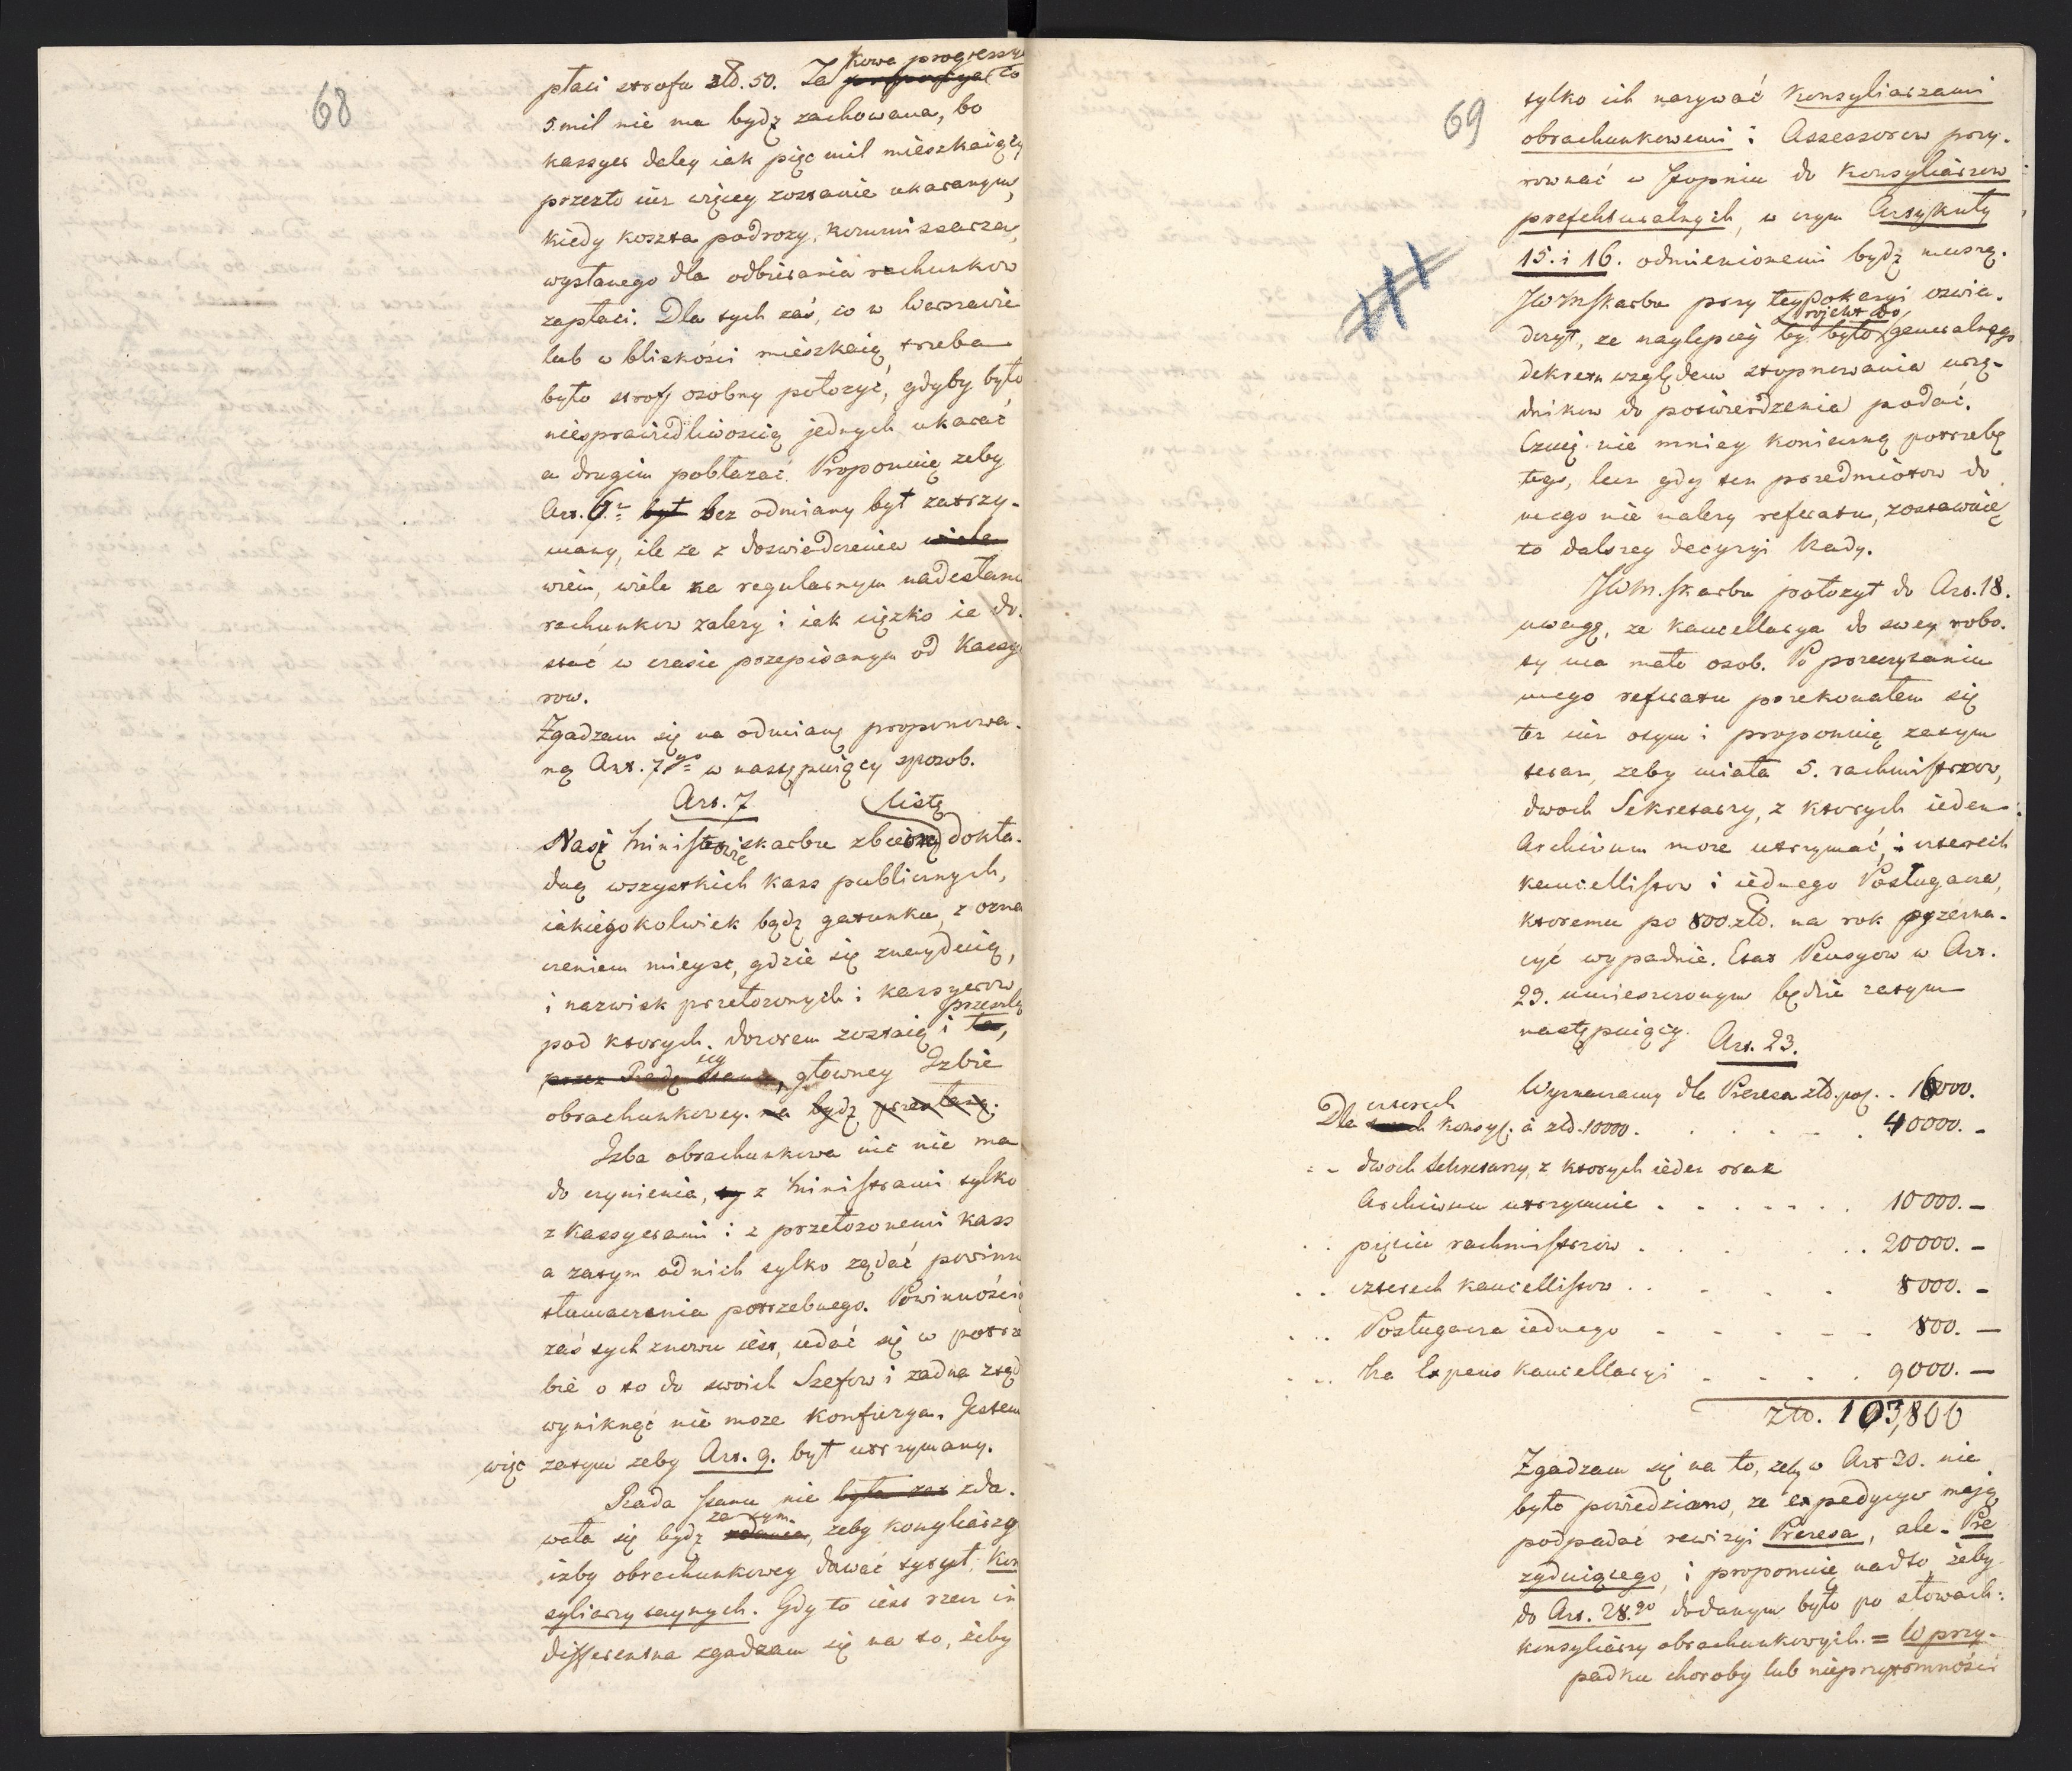 68
płaci strofu złd. 50. Takowa progressya co
5 mil nie ma bydz zachowana, bo
kassyer daley iak pięc mil mieszkaiący
przezto iuz więcey zostanie ukaranym,
kiedy koszta podrozy, kommissarza,
wysłanego dla odbierania rachunkow
zapłaci. Dla tych zaś, co w Warszawie
lub w bliskości mieszkaią, trzeba
było strof osobny położyć, gdyby było
niesprawiedliwością jednych ukarać
a drugim pobłazać. Proponuię zeby
Art. 6. był bez odmiany był zatrzy-
many, ile ze z doswiadczenia wiele
wiem, wiele na regularnym nadesłaniu
rachunkow zalezy i iak cięzko ie do-
stać w czasie przepisanym od Kassye
row.
Zgadzam się na odmianę proponowa-
ną Art. 7go w następuiący sposob.
Art. 7
listę
Nasi Ministrowie skarbu zbiorą dokła-
dną wszystkich kass publicznych,
iakiegokolwiek bądz gatunku, z ozna
czeniem mieysc, gdzie się znayduią,
i nazwisk przełozonych i kassyerow
przeszlą
pod ktorych dozorem zostaią i ta,
przez Radę Stanu, głowney Izbie
obrachunkowey. ma bydz przesłaną.
Izba obrachunkowa nic nie ma
do czynienia, z Ministrami tylko
z Kassyerami i z przełozonemi kass
a zatym od nich tylko ządać powinna
tłumaczenia potrzebnego. Powinnością
zaś tych znowu iest, udać się w potrze
bie o to do swoich Szefow i zadna ztąd
wyniknąć nie moze konfuzya. Jestem
więc zatym zeby Art. 9. był utrzymany.
Rada stanu nie była zda-
za tym
wała się bydz zdania, zeby konsyliarzy
izby obrachunkowey dawać tytuł Kon
syliarzy taynych. Gdy to iest rzecz in
differentna zgadzam się na to, żeby
69
tylko ich nazywać Konsyliarzami
obrachunkowemi i Assessorow przy-
rownać w stopniu do Konsyliarzow
prefekturalnych, w czym Artykuły
15. i 16. odmienionemi bydz muszą.
JWM skarbu przy tey okazyi oswia-
Projekt do
dczył, ze naylepiey by było generalnego
dekretu względem stopnowania urzę-
dnikow do potwierdzenia podać.
Czuię nie mniey konieczną potrzebę
tego, lecz gdy ten przedmiotow do
mego nie nalezy referatu, zostawuię
to dalszey decyzyi Rady.
JWM. skarbu położył do Art. 18.
uwagę, ze kancellarya do swey robo-
ty ma mało osob. Po przeczytaniu
mego referatu przekonałem się
tez iuz o tym i proponuię zatym
teraz, zeby miała 5. rachmistrzow,
dwoch Sekretarzy, z ktorych ieden
Archivum moze utrzymać, i czterech
kancellistow i iednego Posługacza,
ktoremu po 800. złd. na rok przezna-
czyć wypadnie. Etat Pensyow w Art.
23. umieszczonym będzie zatym
następuiący.
Art. 23.
Wyznaczamy dla Prezesa złd. pol. . 16000.
czterech
Dla konsyl. á złd. 10000. . . . . . 40000. -
- - dwoch Sekretarzy, z ktorych ieden oraz
Archivum utrzymuie . . . . . . 10000. -
. . pięciu rachmistrzow . . . . 20000. -
. . czterech kancellistow . . . . . 8000. -
. . . Posługacza iednego - - - - - 800. -
. . . Na Expens kancellaryi . . . . . 9000. -
złd. 103,800
Zgadzam się na to, zeby w Art 20. nie
było powiedziano, ze expedycye maią
podpadać rewizyi Prezesa, ale - Pre
zyduiącego, i proponuię nadto, żeby
do Art. 28.go dodanym było po słowach:
konsyliarzy obrachunkowych. = W przy-
padku choroby lub nieprzytomności